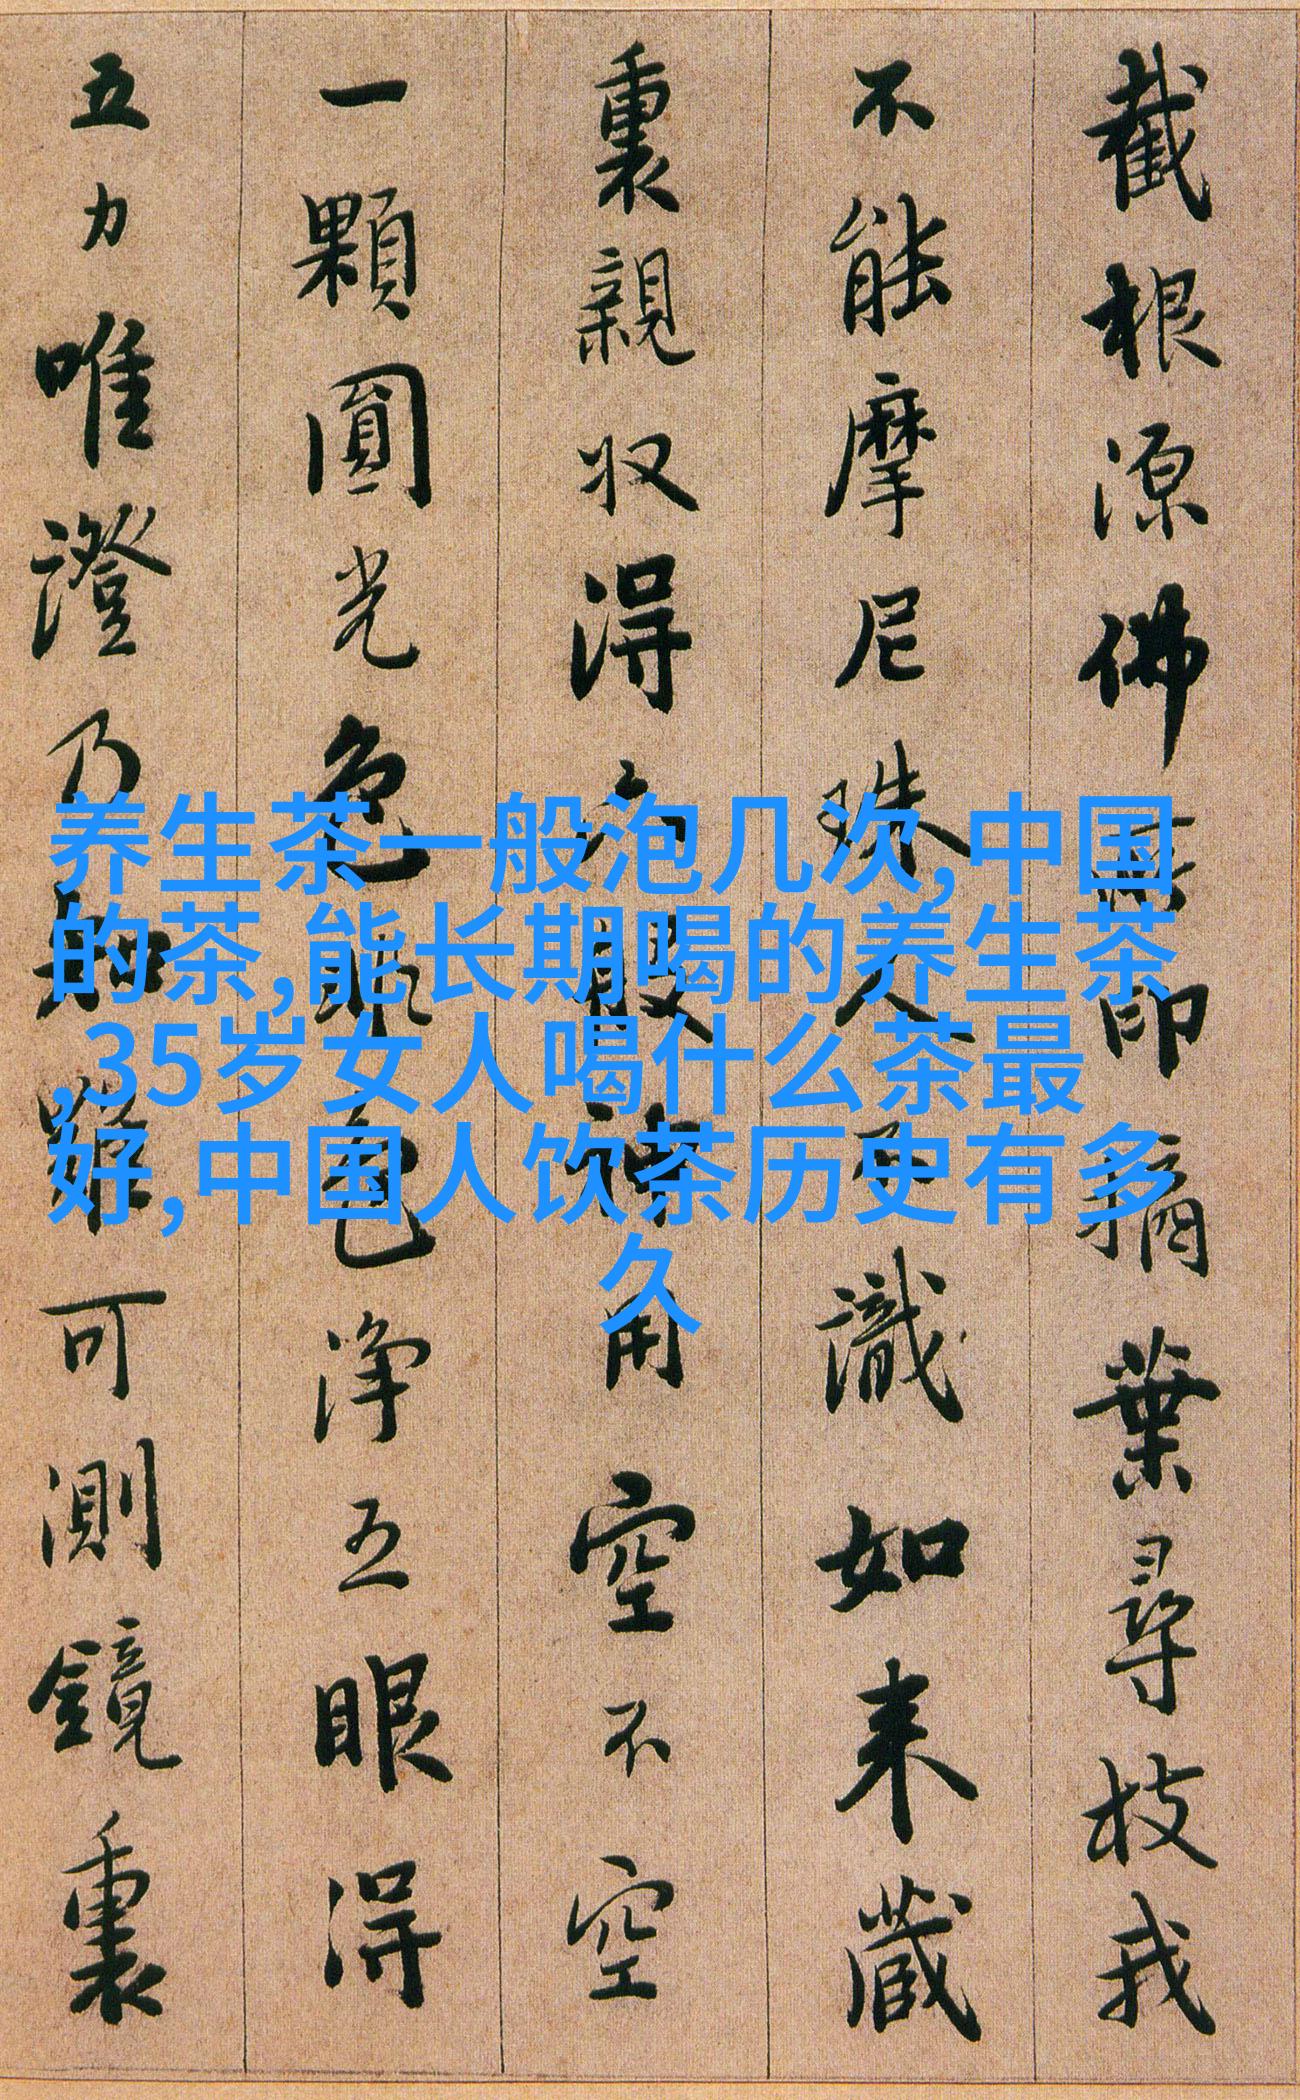 截根源佛所印摘葉尋枝我
不能摩尼珠人不識如来藏
裏親収得六般神用空不空
一顆圓光色非色淨五眼得
五力唯證乃知難可測鏡裏
养生茶一般泡几次,中国
的茶,能长期喝的养生茶
,35岁女人喝什么茶最
好,中国人饮茶历史有多
久